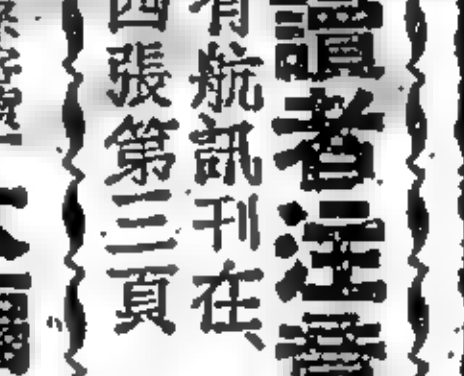 讀者注意
有航訊刊在、
四張第三頁